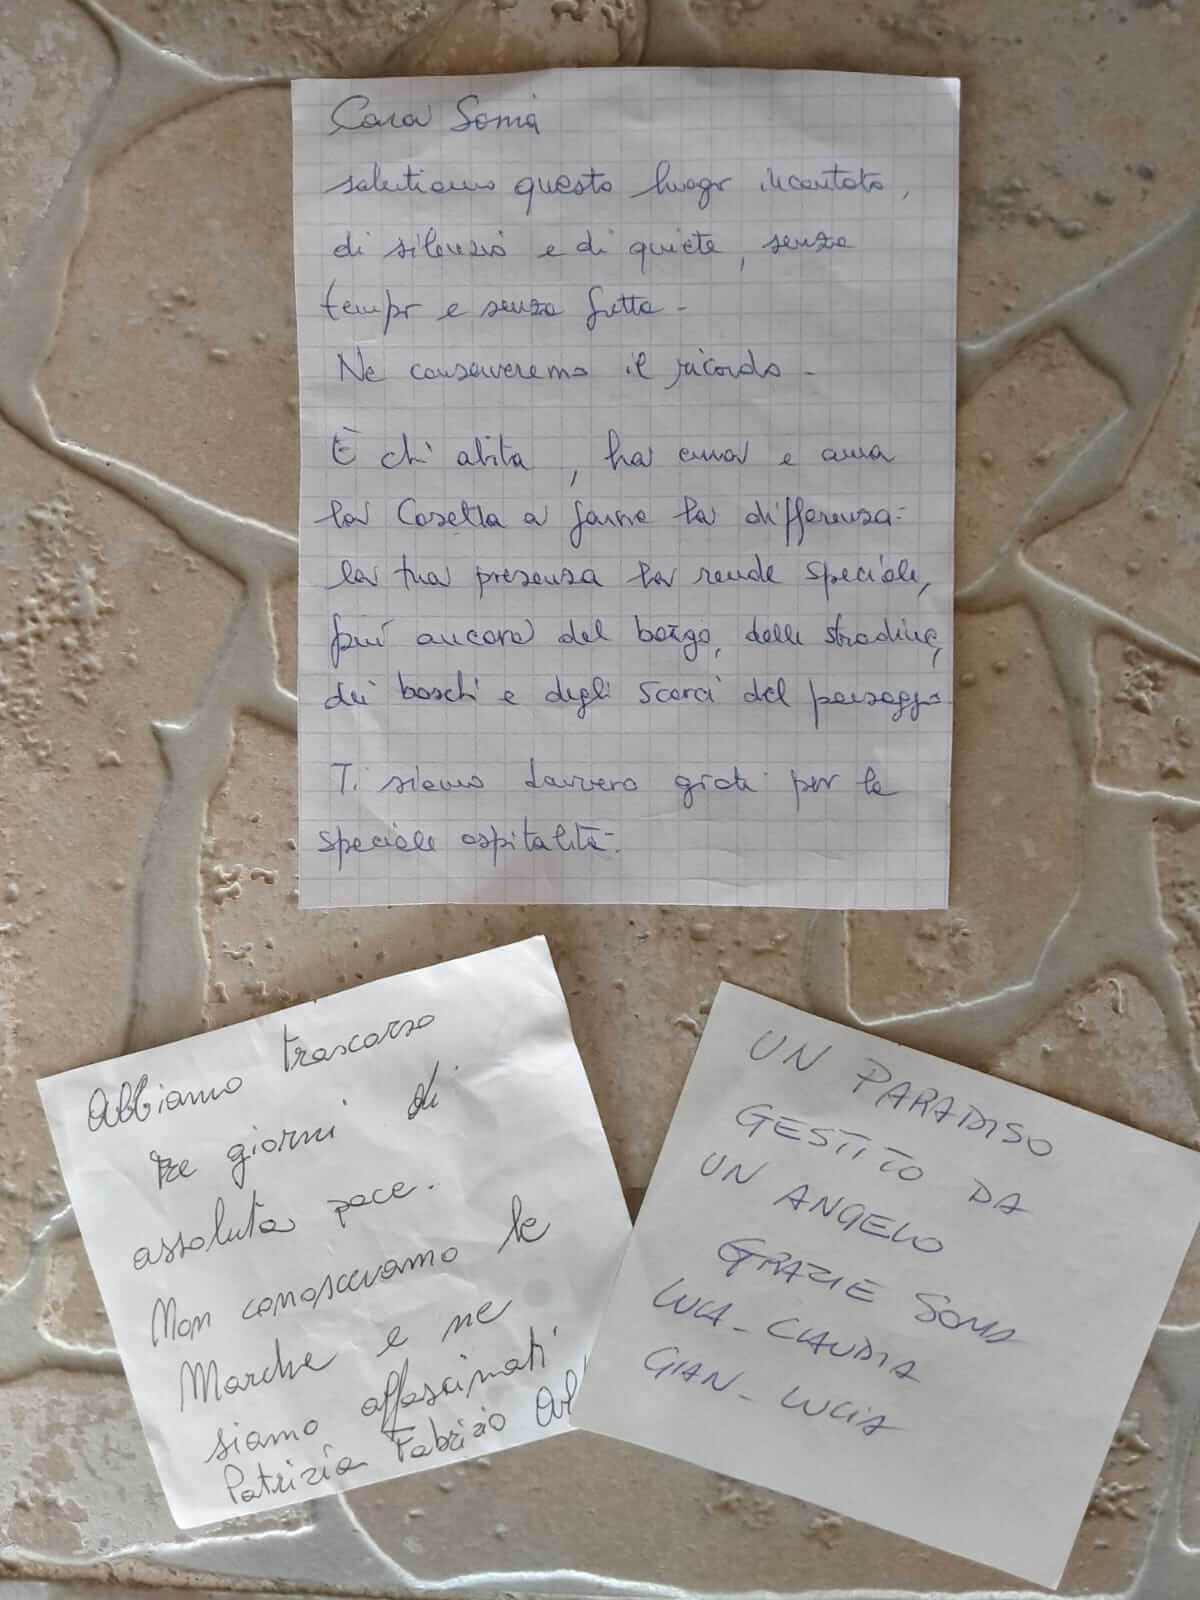 Cara Sonia
salutiamo questo luogo incantato,
di silenzio e di quiete, senza
tempo e senza fretta -
Ne conserveremo il ricordo -
È chi abita, ha cura e ama
la Casetta a farne la differenza:
la tua presenza la rende speciale,
più ancora del borgo, delle stradine,
dei boschi e degli scorci del paesaggio
Ti siamo davvero grati per la
speciale ospitalità.
Abbiamo trascorso
tre giorni di
assoluta pace.
Non conoscevamo le
Marche e ne
siamo affascinati
Patrizia Fabrizio
UN PARADISO
GESTITO DA
UN ANGELO
GRAZIE SONIA
LUCA - CLAUDIA
GIAN - LUCIA